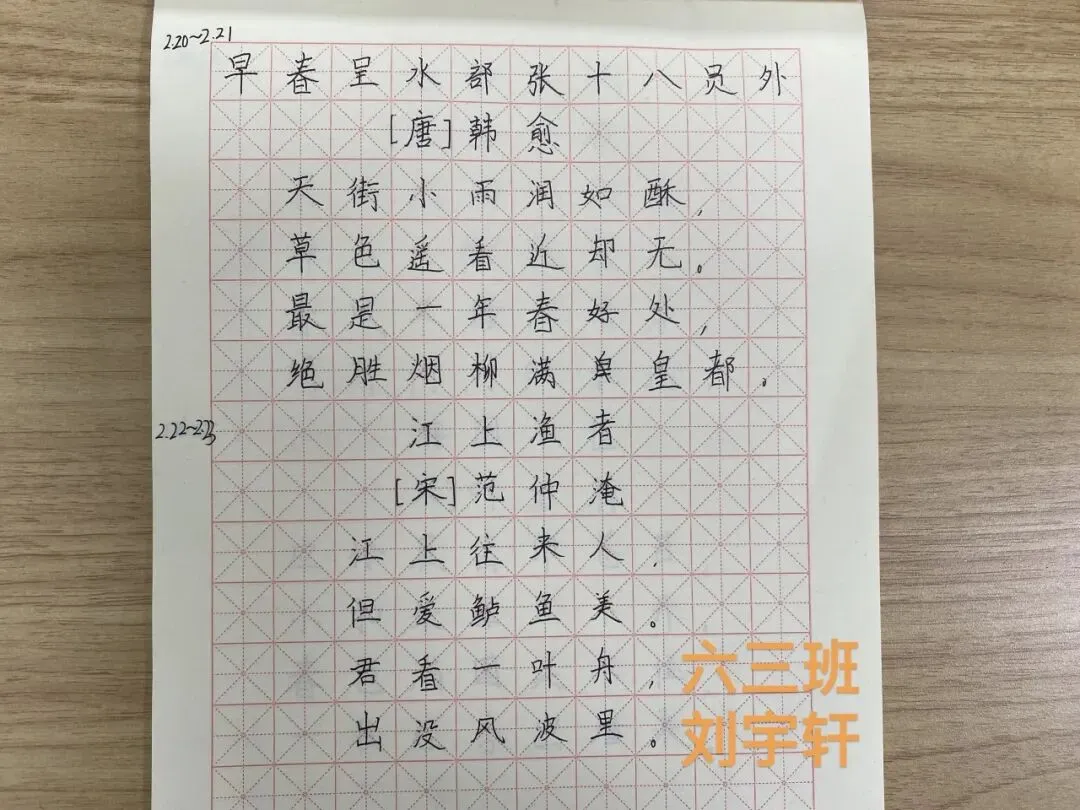 2.20~2.21
早春呈水部张十八员外
[唐]韩愈
天街小雨润如酥,
草色遥看近却无。
最是一年春好处,
绝胜烟柳满皇都。
2.22~2.23
江上渔者
[宋]范仲淹
江上往来人,
但爱鲈鱼美。
君看一叶舟,
出没风波里。
六三班
刘宇轩